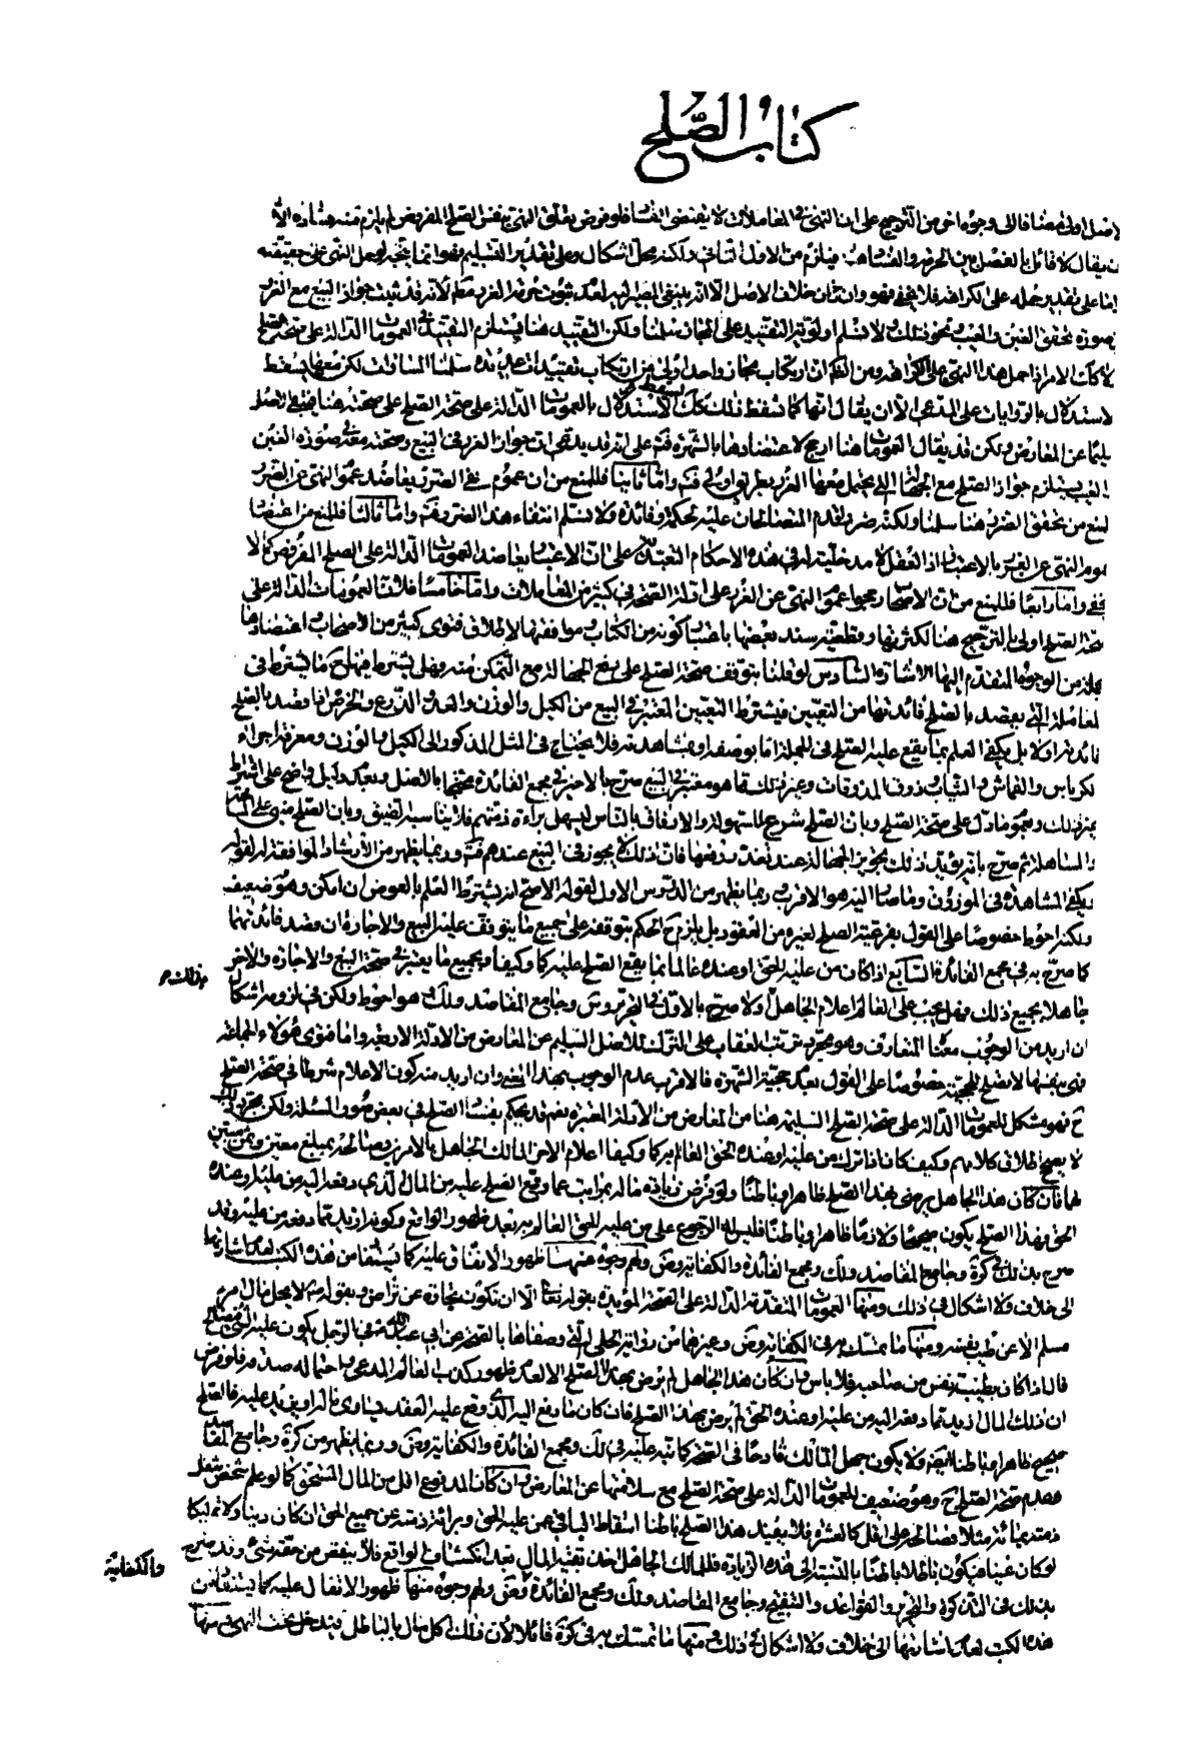 كتاب الصلح
الاصل الاولى مضافا الى وجوه اخر من الترجيح على ان النهى فى المعاملات لا يقتضى الفساد فلو فرض تعلق النهى بنفس الصلح المفروض لم يلزم منه فساده الا
ان يقال لا قائل بالفصل بين الحرمة والفساد هنا فيلزم من الاول الثانى ولكنه محل اشكال وعلى تقدير التسليم فهو انما يتجه لو حمل النهى على حقيقته
اما على تقدير حمله على الكراهة فلا يخفى فهو وان كان خلاف الاصل الا انه ينبغى المصير اليه بعد ثبوت حرمة الغرر مع انه قد ثبت جواز البيع مع الغرر
بصورة تحقق الغبن والعيب ونحو ذلك لا نسلم اولوية التقييد على المجاز سلمنا ولكن التقييد هنا يستلزم التقييد فى العمومات الدالة على صحة الصلح
لاستدلال بالروايات على المدعى الا ان يقال انها كما سقط ذلك كك الاستدلال بالعمومات الدالة على صحة الصلح على صحته هنا فيبقى الاصل
سليما عن المعارض ولكن قد يقال العمومات هنا ارجح لاعتضادها بالشهرة فت على انه قد يدعى ان جواز الغرر فى البيع وصحته معه فى صورة الغبن
والعيب يستلزم جواز الصلح مع الجهالة التى يحتمل معها الغرر بطريق اولى فت واما ثانيا فللمنع من ان عموم نفى الضرر يعاضد عموم النهى عن الغرر
لمنع من تحقق الضرر هنا سلمنا ولكنه ضرر اقدم المتصالحان عليه لحكمة وفائدة ولا نسلم انتفاء هذا الضرر فت واما ثالثا فللمنع من اعتضاد
عموم النهى عن الغرر بالاعتبار اذ العقل لا مدخلية له فى هذه الاحكام التعبدية على ان الاعتبار يعاضد العمومات الدالة على الصلح المفروض كما لا
يخفى واما رابعا فللمنع من ان الاصحاب رجحوا عموم النهى عن الغرر على ادلة الصحة فى كثير من المعاملات واما خامسا فلان العمومات الدالة على
صحة الصلح اولى بالترجيح هنا لكثرتها وقطعية سند بعضها باعتبار كونه من الكتاب وموافقتها لاطلاق فتوى كثير من الاصحاب واعتضادها
بجملة من الوجوه المتقدم اليها الاشارة السادس لو قلنا بتوقف صحة الصلح على رفع الجهالة مع التمكن منه فهل يشترط فيها ح ما يشترط فى
المعاملة التى يقصد بالصلح فائدتها من التعيين فيشترط التعيين المعتبر فى البيع من الكيل والوزن والعدد والذرع والخرص اذا قصد بالصلح
فائدته او لا بل يكفى العلم بما يقع عليه الصلح فى الجملة اما بوصف او بمشاهدته فلا يحتاج فى المثل المذكور الى الكيل والوزن ومعرفة اجزاء
الكرباس والقماش والثياب وذوق المذوقات وغير ذلك مما هو معتبر فى البيع صرح بالاخير فى مجمع الفائدة محتجا بالاصل وبعدم دليل واضح على اشتراط
غير ذلك وبعموم ما دل على صحة الصلح وبان الصلح شرع للسهولة والارفاق بالناس ليسهل براءة ذمتهم فلا يناسبه التضييق وبان الصلح مبنى على
والمساهلة ثم صرح بانه يؤيد ذلك تجويز الجهالة عند تعذر رفعها فان ذلك لا يجوز فى البيع عندهم فت وربما يظهر من الارشاد الموافقة له لقوله
يكفى المشاهدة فى الموزون وما صار اليه هو الاقرب وربما يظهر من الدروس الاول لقوله الاصح انه يشترط العلم بالعوض ان امكن وهو ضعيف
ولكنه احوط خصوصا على القول بفرعية الصلح لغيره من العقود بل يلزم ح الحكم بتوقفه على جميع ما يتوقف عليه البيع والاجارة ان قصد فائدتهما
كما صرح به فى مجمع الفائدة السابع اذا كان من عليه الحق او عنده عالما بما يقع الصلح عليه كما وكيفا وبجميع ما يعتبر فى صحة البيع والاجارة والاخر
جاهلا بجميع ذلك فهل يجب على العالم اعلام الجاهل او لا صرح بالاول فى التحرير وض وجامع المقاصد ولك وهو احوط ولكن فى لزومه اشكال
ان اريد من الوجوب معناه المتعارف وهو مجرد ترتب العقاب على الترك للاصل السليم عن المعارض من الادلة الاربعة واما فتوى هؤلاء الجماعة
فهى بنفسها لا تصلح للحجية خصوصا على القول بعدم حجية الشهرة فالاقرب عدم الوجوب بهذا المعنى وان اريد منه كون الاعلام شرطا فى صحة الصلح
ح فهو مشكل للعمومات الدالة على صحة الصلح السليمة هنا من المعارض من الادلة المعتبرة نعم قد يحكم بفساد الصلح فى بعض صور المسئلة ولكن بمجرد ذلك
لا يصح اطلاق كلامهم وكيف كان اذا ترك من عليه او عنده الحق العالم به كما وكيفا اعلام الاخر المالك الجاهل بالامرين وصالحه بمبلغ معين
فان كان هذا الجاهل يرضى بهذا الصلح ظاهرا وباطنا ولو فرض زيادة ماله بمراتب عما وقع الصلح عليه من المال الذى دفعه اليه من عليه او عنده
الحق فهذا الصلح يكون صحيحا ولازما ظاهرا وباطنا فليس له الرجوع على من عليه الحق العالم به بعد ظهور الواقع وكونه ازيد مما دفعه من عليه وقد
صرح بذلك فى كرة وجامع المقاصد ولك ومجمع الفائدة والكفاية وض ولهم وجوه منها ظهور الاتفاق عليه كما يستفاد من هذه الكتب لعدم اشارتها
الى خلاف ولا اشكال فى ذلك ومنها العمومات المتقدمة الدالة على الصحة المؤيدة بقوله تعالى الا ان تكون تجارة عن تراض وبقوله ع لا يحل مال امرء
مسلم الا عن طيب نفسه ومنها ما تمسك به فى الكفاية وض وغيرهما من رواية الحلبى التى وصفاها بالصحة عن ابى عبد الله ع فى الرجل يكون عليه الشئ فيصالح
قال اذا كان بطيبة نفس من صاحبه فلا باس وان كان هذا الجاهل لم يرض بهذا الصلح الا لعدم ظهور كذب العالم المدعى واحتماله صدقه فلو فرض
ان ذلك المال ازيد مما دفعه اليه من عليه او عنده الحق لم يرض بهذا الصلح فان كان ما دفع اليه الذى وقع عليه العقد يساوى ماله او يزيد عليه فالصلح
صحيح ظاهرا وباطنا ايضا ولا يكون جهل المالك قادحا فى الصحة كما نبه عليه فى لك ومجمع الفائدة والكفاية وض وربما يظهر من كرة وجامع المقاصد
عدم صحة الصلح ح وهو ضعيف للعمومات الدالة على صحة الصلح مع سلامتها عن المعارض وان كان المدفوع اقل من المال المستحق كما لو علم شخص بشغل
ذمته بمائة مثلا فصالحه على اقل كالعشرة فلا يفيد هذا الصلح باطنا اسقاط الباقى عمن عليه الحق وبرائة ذمته عن جميع الحق ان كان دينا ولا تمليكا
لو كان عينا فيكون باطلا باطنا بالنسبة الى هذه الزيادة فللمالك الجاهل اخذ بقية المال بعد انكشاف الواقع فلا ينقص من حقه شئ وقد صرح
بذلك فى التذكرة والتحرير والقواعد والتنقيح وجامع المقاصد ولك ومجمع الفائدة وض ولهم وجوه منها ظهور الاتفاق عليه كما يستفاد من
هذه الكتب لعدم اشارتها الى خلاف ولا اشكال فى ذلك ومنها ما تمسك به فى كرة قائلا لان ذلك اكل مال بالباطل فيدخل تحت النهى ومنها
والكفاية